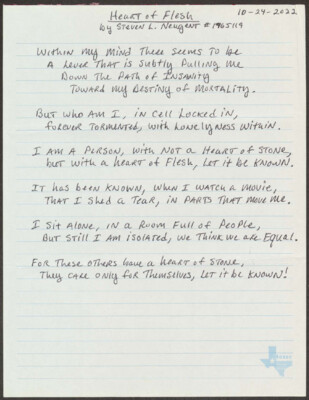 Heart of Flesh
10-24-2022
by Steven L. Neugent #1965119
Within my mind there seems to be
A lever that is subtly pulling me
Down the path of insanity
Toward my destiny of mortality.
But who am I, in cell locked in,
forever tormented, with lonelyness within.
I am a person, with not a heart of stone,
but with a heart of flesh, let it be known.
It has been known, when I watch a movie,
that I shed a tear, in parts that move me.
I sit alone, in a room full of people,
But still I am isolated, we think we are equal.
For these others have a heart of stone,
They care only for themselves, let it be known!